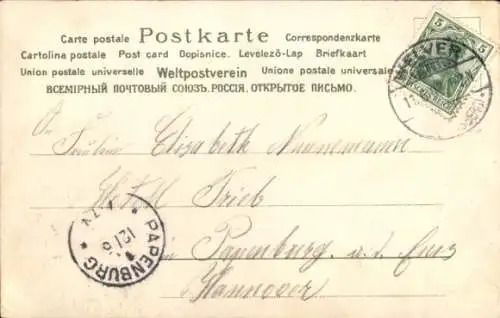 Carte postale Postkarte Correspondenzkarte
Cartolina postale Post card Dopisnice. Levelező-Lap Briefkaart
Union postale universelle Weltpostverein Unione postale universale
ВСЕМІРНЫЙ ПОЧТОВЫЙ СОЮЗЪ. РОССІЯ. ОТКРЫТОЕ ПИСЬМО.
5 5
WELVER
An
Fräulein Elisabeth Nunnemann
Hotel Trieb
in Papenburg a. d. Ems
Hannover
PAPENBURG